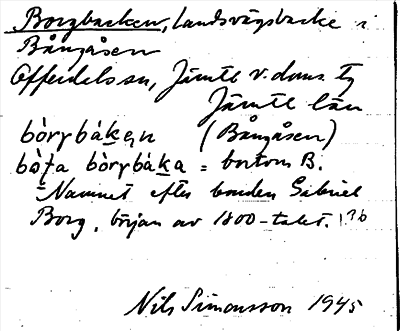 Borgbacken, Landsvägsbacke i
Bångåsen
Offerdals sn, Jämtl. v. doms. Tg
Jämtl. län
bòrgbákẹn (Bångåsen)
bòṛta bòrgbáka = bortom B.
Namnet efter bonden Gabriel
Borg, början av 1800-talet.
Nils Simonsson 1945